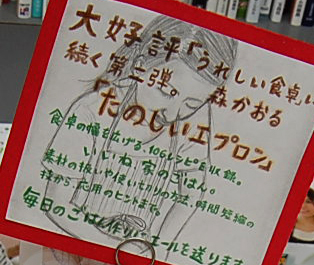 大好評「うれしい食卓」に
続く第二弾。 森かおる
「たのしいエプロン」
食卓の幅を広げる、106レシピを収録。
いいね、家のごはん。
素材の扱いや使い切りの方法、時間短縮の
技から、応用のヒントまで。
毎日のごはん作りにエールを送ります